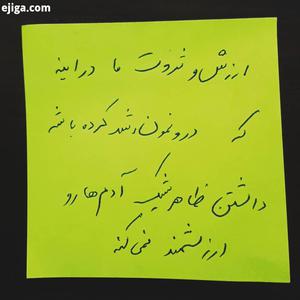 ejiga.com
ارزش و ثروت ما در اینه
که درونمون رشد کرده باشه
داشتن ظاهر شیک آدم‌ها رو
ارزشمند نمی‌کنه